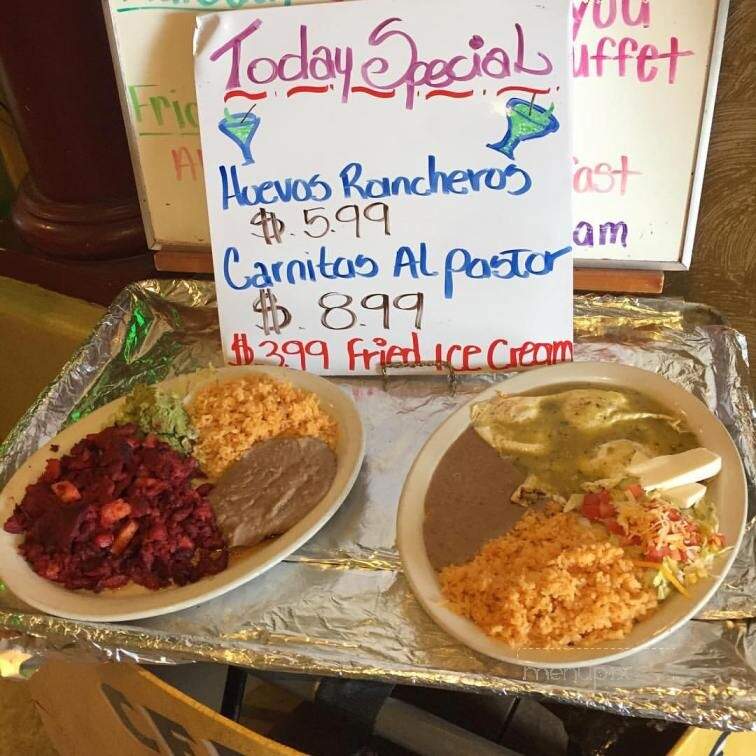 you
uffet
Today Special
Huevos Rancheros
$ 5.99
Carnitas Al Pastor
$. 8.99
$3.99 Fried Ice Cream
Fri
ast
am
menupix